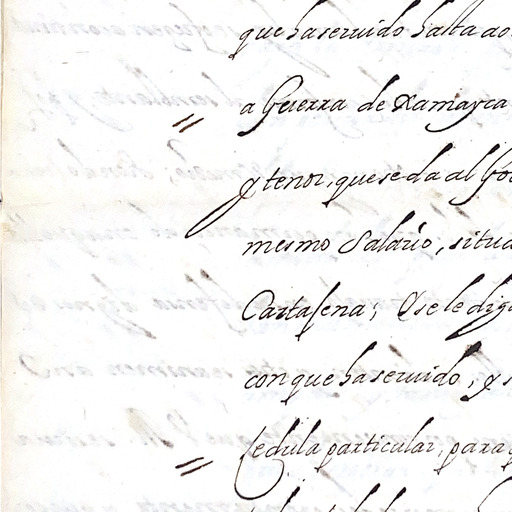 que ha seruido hasta ao
a Guerra de Xamayca
y tenor, que se da al Go
mesmo Salario, situa
Cartagena; Y se le diga
con que ha seruido, y s
Cedula particular, para q